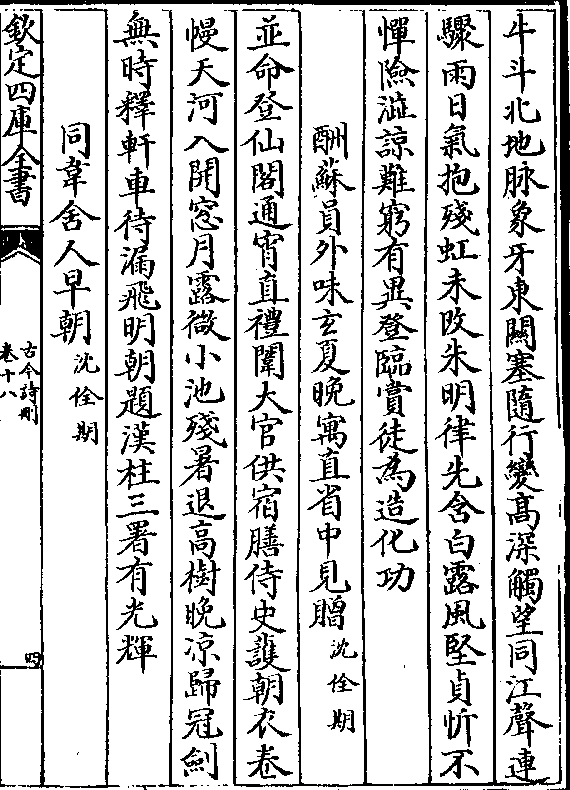 牛斗北地脉象牙東關塞隨行變高深觸望同江聲連
驟雨日氣抱殘虹未改朱明律先含白露風堅貞忻不
憚險澁諒難窮有異登臨賞徒為造化功
酬蘇員外味玄夏晚寓直省中見贈 沈佺期
並命登仙閣通宵直禮闈大官供宿膳侍史護朝衣卷
幔天河入開窓月露微小池殘暑退高樹晚凉歸冠劍
無時釋軒車待漏飛明朝題漢柱三署有光輝
同韋舍人早朝 沈佺期
欽定四庫全書
古今詩刪
卷十八
四